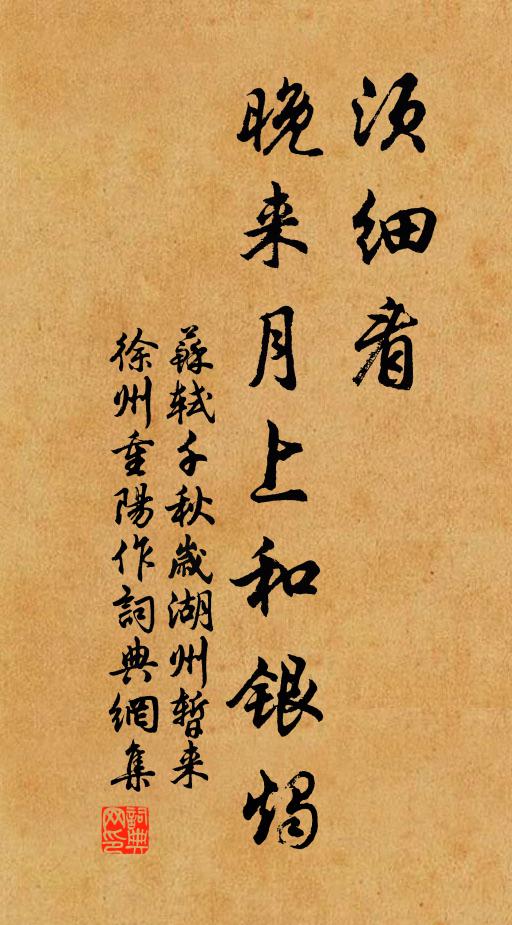 须细看
晚来月上和银烛
蘇軾千秋歲湖州暫来
徐州重陽作詞典網集
詞典網印